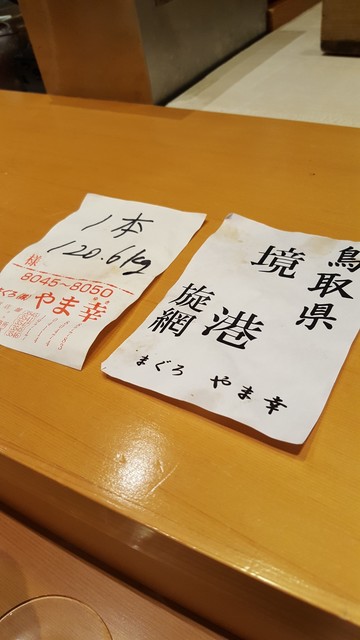 1本
120.6kg
様
8045~8050
やま幸
鳥取県
境港
旋網
まぐろ やま幸